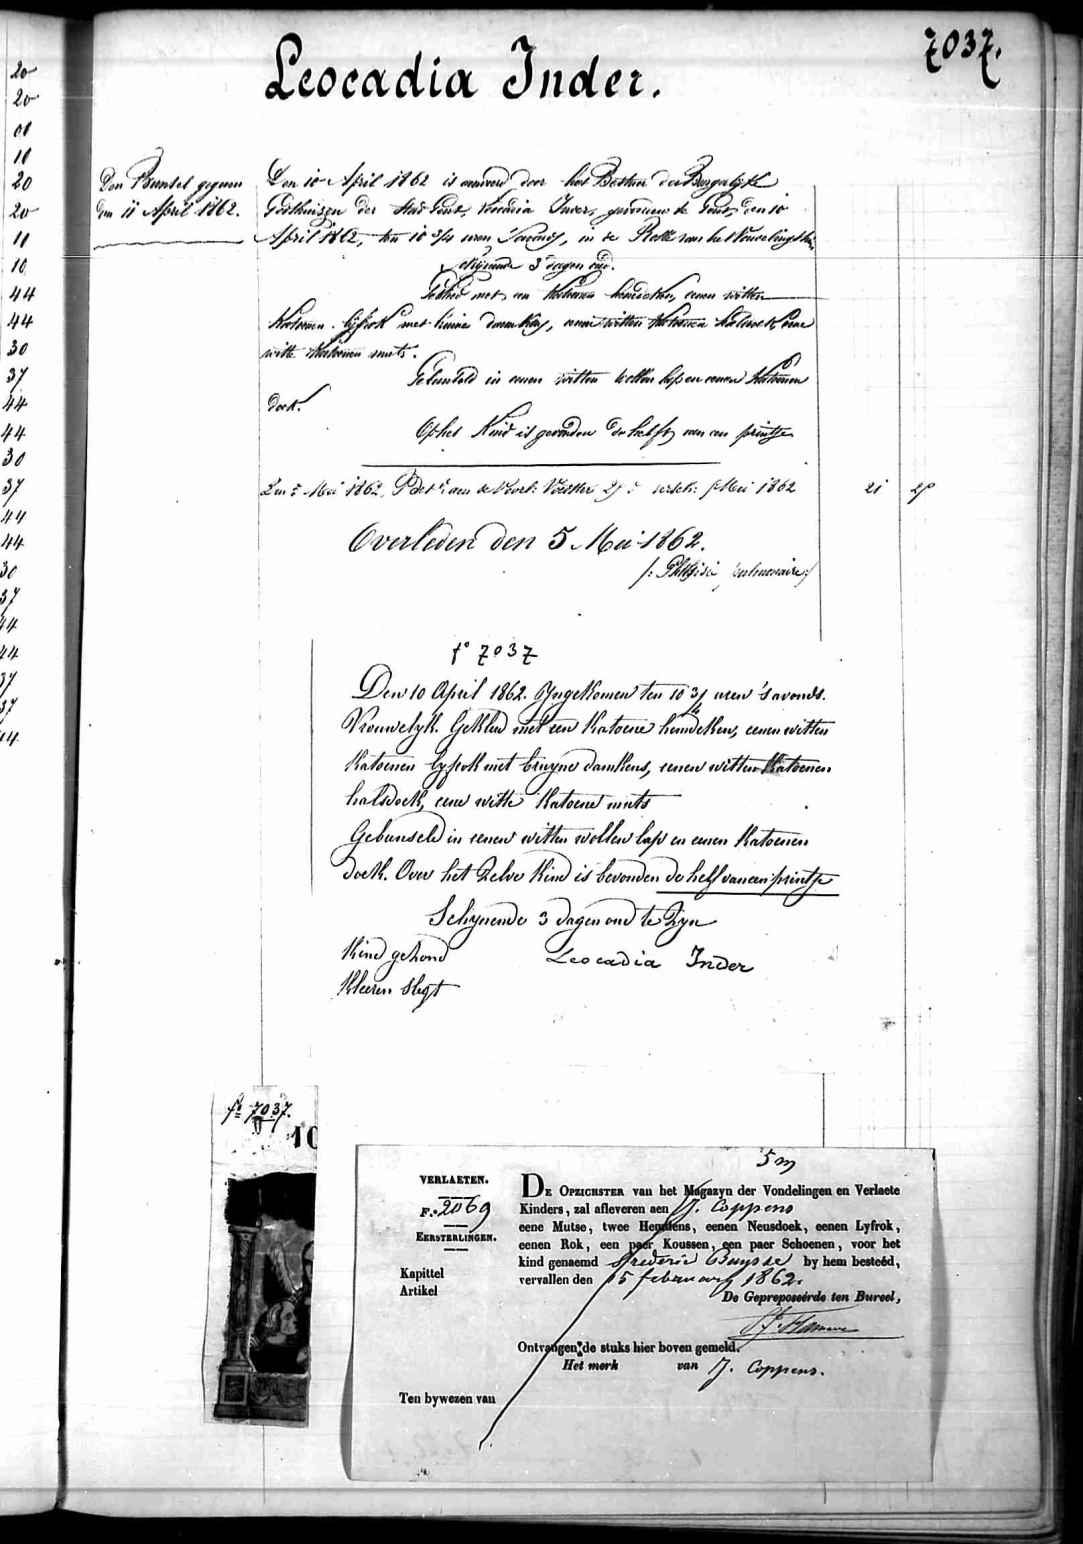 7037.
Leocadia Inder.
20
20
01
10
20
20
11
10
44
44
30
37
44
44
30
37
44
44
30
37
44
44
37
37
44
Den Bunsel gegeven
den 11 April 1862.
Den 10 April 1862 is aenveerd door het Bestuer der Burgerlijke
Godshuizen der Stad Gent, Leocadia Inder, gevonden te Gent, den 10
April 1862, ten 10 3/4 uren 's avonds, in de Rolle van het Vondelingshuis
schijnende 3 dagen oud.
Gekleed met een Katoenen hemdeken, eenen witten
Katoenen lijfrok met bruine damkens, eenen witten Katoenen halsdoek, eene
witte Katoenen muts.
Gebunseld in eenen witten wollen lap en eenen Katoenen
doek.
Op het Kind is gevonden de helft van een printje
Den Mei 1862, Mei 1862 21
Overleden den 5 Mei 1862.
/: Phthisie pulmonaire :/
f° 7037
Den 10 April 1862. Ingekomen ten 10 3/4 uren 's avonds.
Vrouwelyk. Gekleed met een Katoene hemdeken, eenen witten
Katoenen lyfrok met bruyne damkens, eenen witten Katoenen
halsdoek, eene witte Katoene muts
Gebunseld in eenen witten wollen lap en eenen Katoenen
doek. Over het Zelve Kind is bevonden de helf van een printje
Schynende 3 dagen oud te Zyn
Kind gezond Leocadia Inder
Kleeren Slegt
f° 7037.
10
5 m
VERLAETEN.
F.° 2069
EERSTERLINGEN.
Kapittel
Artikel
Ten bywezen van
DE OPZICHSTER van het Magazyn der Vondelingen en Verlaete
Kinders, zal afleveren aen J. Coppens
eene Mutse, twee Hemdens, eenen Neusdoek, eenen Lyfrok,
eenen Rok, een paer Koussen, een paer Schoenen, voor het
kind genaemd Frederic Buysse by hem besteéd,
vervallen den 15 february 1862.
De Gepreposeérde ten Bureel,
Ontvangen de stuks hier boven gemeld.
Het merk van J. Coppens.